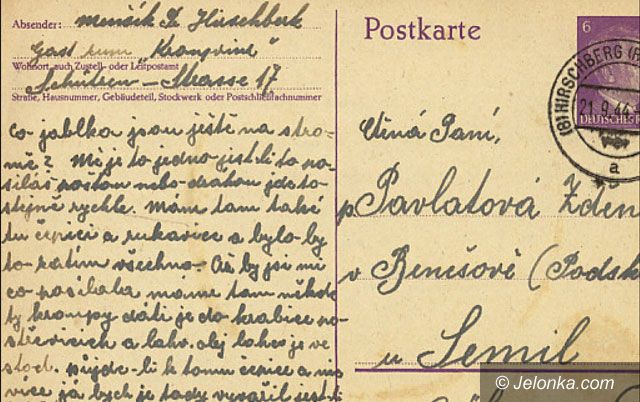 Absender: Menšík Fr Hirschberk
Gast zum "Kronprinz"
Wohnort, auch Zustell- oder Leitpostamt
Schützen-Strasse 17
Straße, Hausnummer, Gebäudeteil, Stockwerk oder Postschließfachnummer
co jablka jsou ještě na stro-
mě? Mě je to jedno jestli to po
siláš poštou nebo drahou jde to
stejně rychle. Mám tam také
tu čepici a rukavice a bylo by
to zatím všechno. Až by jsi mi
co posílala máme tam někde
ty kroupy dáti je do krabice po
střevících a lahv. olej lahev je ve
stod. půjde-li k tomu čepice a
více já bych je tady uvařil jestli
Postkarte
6
(8) HIRSCHBERG (R
21.9.44
DEUTSCHES R
a
Ctěná Paní,
p Pavlatová Zden
v Benešově (Podsk
u Semil
© Jelonka.com